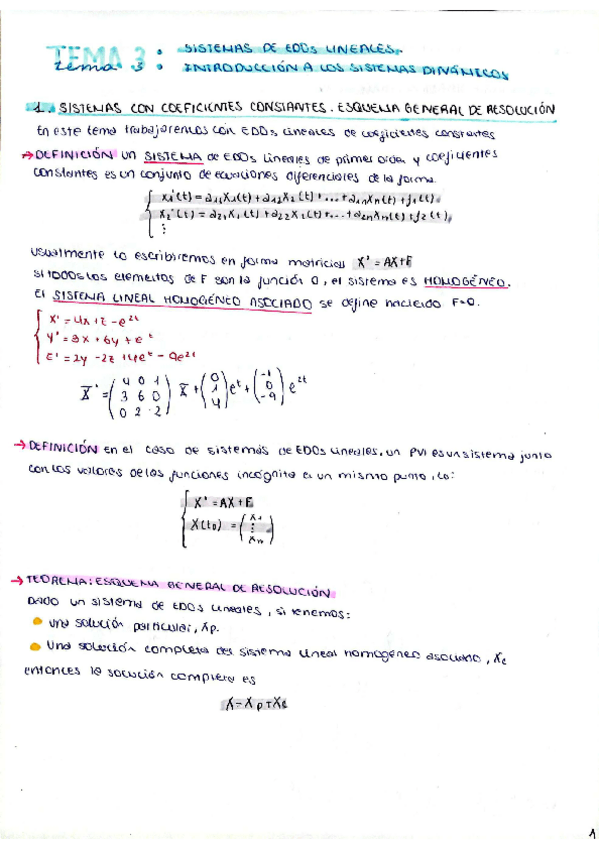 TEMA 3: SISTEMAS DE EDOs LINEALES.
tema 3: INTRODUCCIÓN A LOS SISTEMAS DINÁMICOS
1. SISTEMAS CON COEFICIENTES CONSTANTES. ESQUEMA GENERAL DE RESOLUCIÓN
En este tema trabajaremos con EDOs lineales de coeficientes constantes
→ DEFINICIÓN un SISTEMA de EDOs lineales de primer orden y coeficientes
constantes es un conjunto de ecuaciones diferenciales de la forma
x₁'(t) = a₁₁x₁(t) + a₁₂x₂(t) + ... + a₁ₙxₙ(t) + f₁(t)
x₂'(t) = a₂₁x₁(t) + a₂₂x₂(t) + ... + a₂ₙxₙ(t) + f₂(t)
⋮
usualmente lo escribiremos en forma matricial X' = AX+F
si todos los elementos de F son la función 0, el sistema es HOMOGÉNEO.
El SISTEMA LINEAL HOMOGÉNEO ASOCIADO se define haciendo F=0.
x' = 4x + z - e^2t
y' = 3x + 6y + e^t
z' = 2y - 2z + 4e^t - 9e^2t
X' = (4 0 1 / 3 6 0 / 0 2 -2) X + (0 / 1 / 4) e^t + (-1 / 0 / -9) e^2t
→ DEFINICIÓN en el caso de sistemas de EDOs lineales, un PVI es un sistema junto
con los valores de las funciones incógnita en un mismo punto, t₀:
X' = AX + F
X(t₀) = (x₁ ⋮ xₙ)
→ TEOREMA: ESQUEMA GENERAL DE RESOLUCIÓN
Dado un sistema de EDOs lineales, si tenemos:
• una solución particular, Xp.
• Una solución completa del sistema lineal homogéneo asociado, Xc
entonces la solución completa es
X = Xp + Xc
1